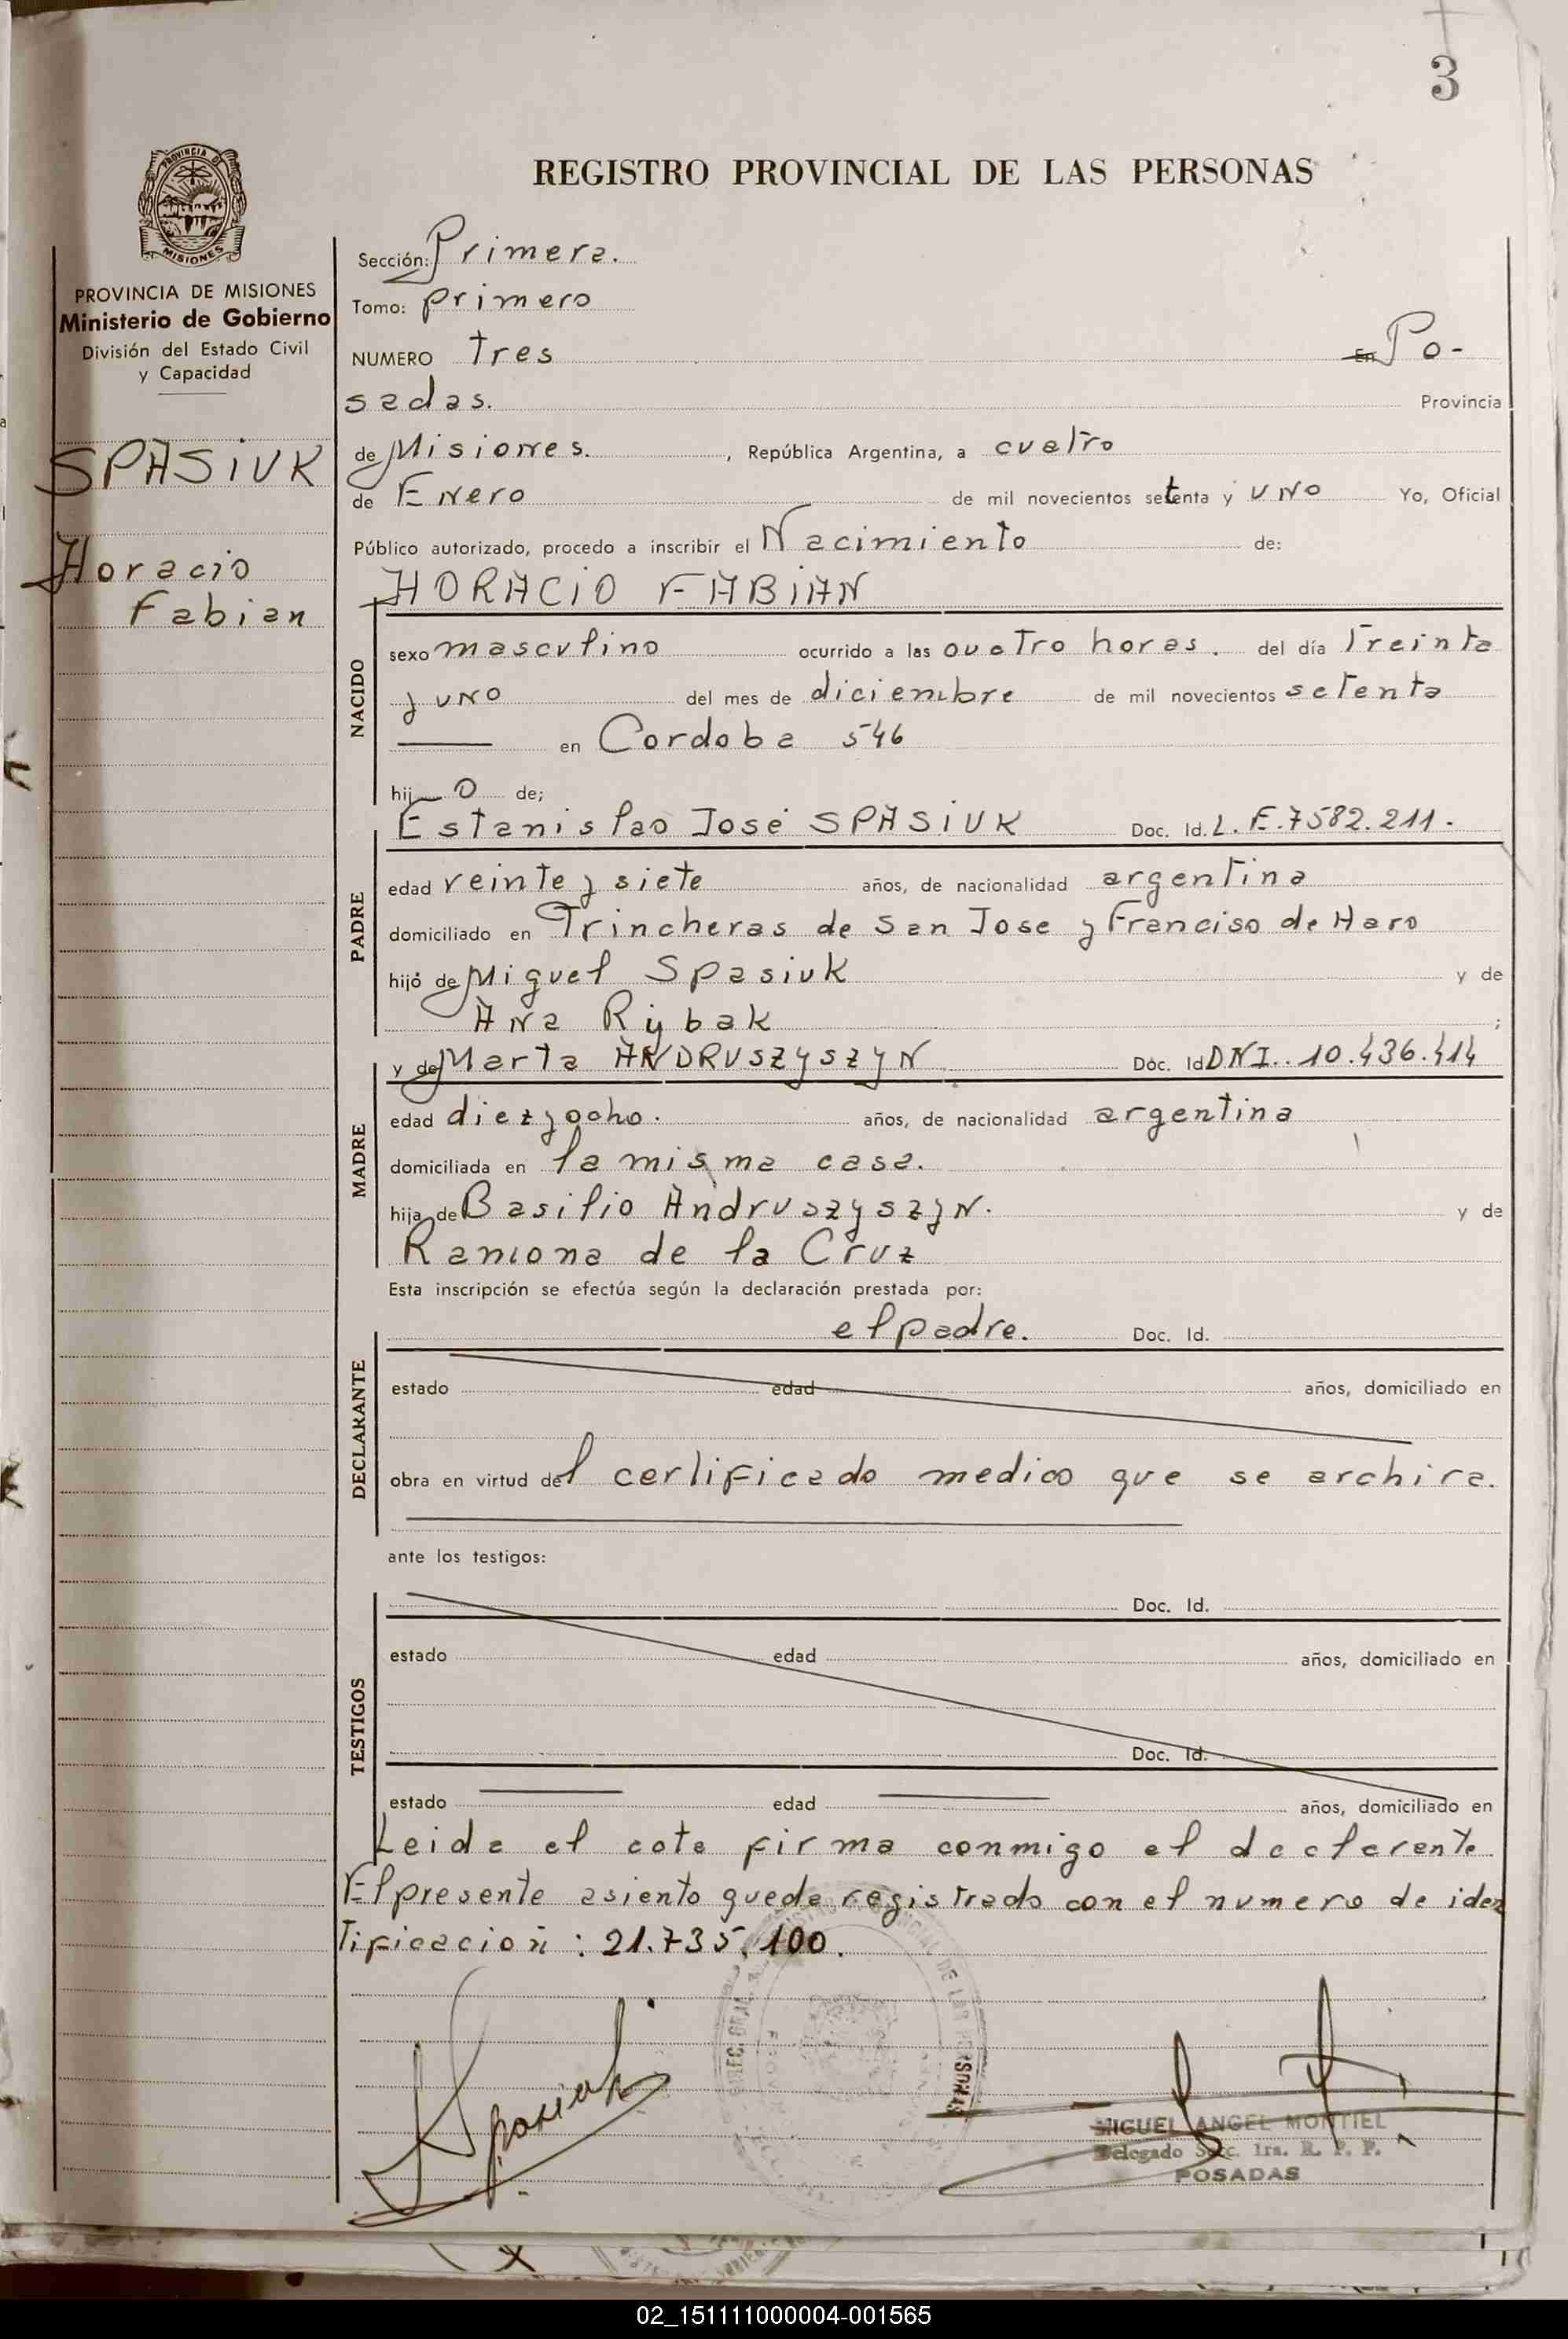 3
REGISTRO PROVINCIAL DE LAS PERSONAS
PROVINCIA DE
MISIONES
PROVINCIA DE MISIONES
Ministerio de Gobierno
División del Estado Civil
y Capacidad
SPASIUK
Horacio
Fabian
Sección: Primera.
Tomo: primero
NUMERO tres En Po-
sadas. Provincia
de Misiones. , República Argentina, a cuatro
de Enero de mil novecientos setenta y uno Yo, Oficial
Público autorizado, procedo a inscribir el Nacimiento de:
HORACIO FABIAN
NACIDO
sexo masculino ocurrido a las cuatro horas. del día Treinta
y uno del mes de diciembre de mil novecientos setenta
en Cordoba 546
hij o de;
Estanislao José SPASIUK Doc. Id. L.E. 7582.211.
PADRE
edad veinte y siete años, de nacionalidad argentina
domiciliado en Trincheras de San Jose y Franciso de Haro
hijo de Miguel Spasiuk y de
Ana Rybak ;
y de Marta ANDRUSZYSZYN Doc. Id DNI.. 10.436.414
MADRE
edad diez y ocho. años, de nacionalidad argentina
domiciliada en la misma casa.
hija de Basilio Andruszyszyn. y de
Ramona de la Cruz
Esta inscripción se efectúa según la declaración prestada por:
el padre. Doc. Id.
DECLARANTE
estado edad años, domiciliado en
obra en virtud del certificado medico que se archiva.
ante los testigos:
Doc. Id.
TESTIGOS
estado edad años, domiciliado en
Doc. Id.
estado edad años, domiciliado en
Leida el acta firma conmigo el declarente
El presente asiento queda registrado con el numero de iden
tificacion: 21.735.100.
Spasiuk
MIGUEL ANGEL MONTIEL
Delegado Secc. 1ra. R. P. P.
POSADAS
02_151111000004-001565